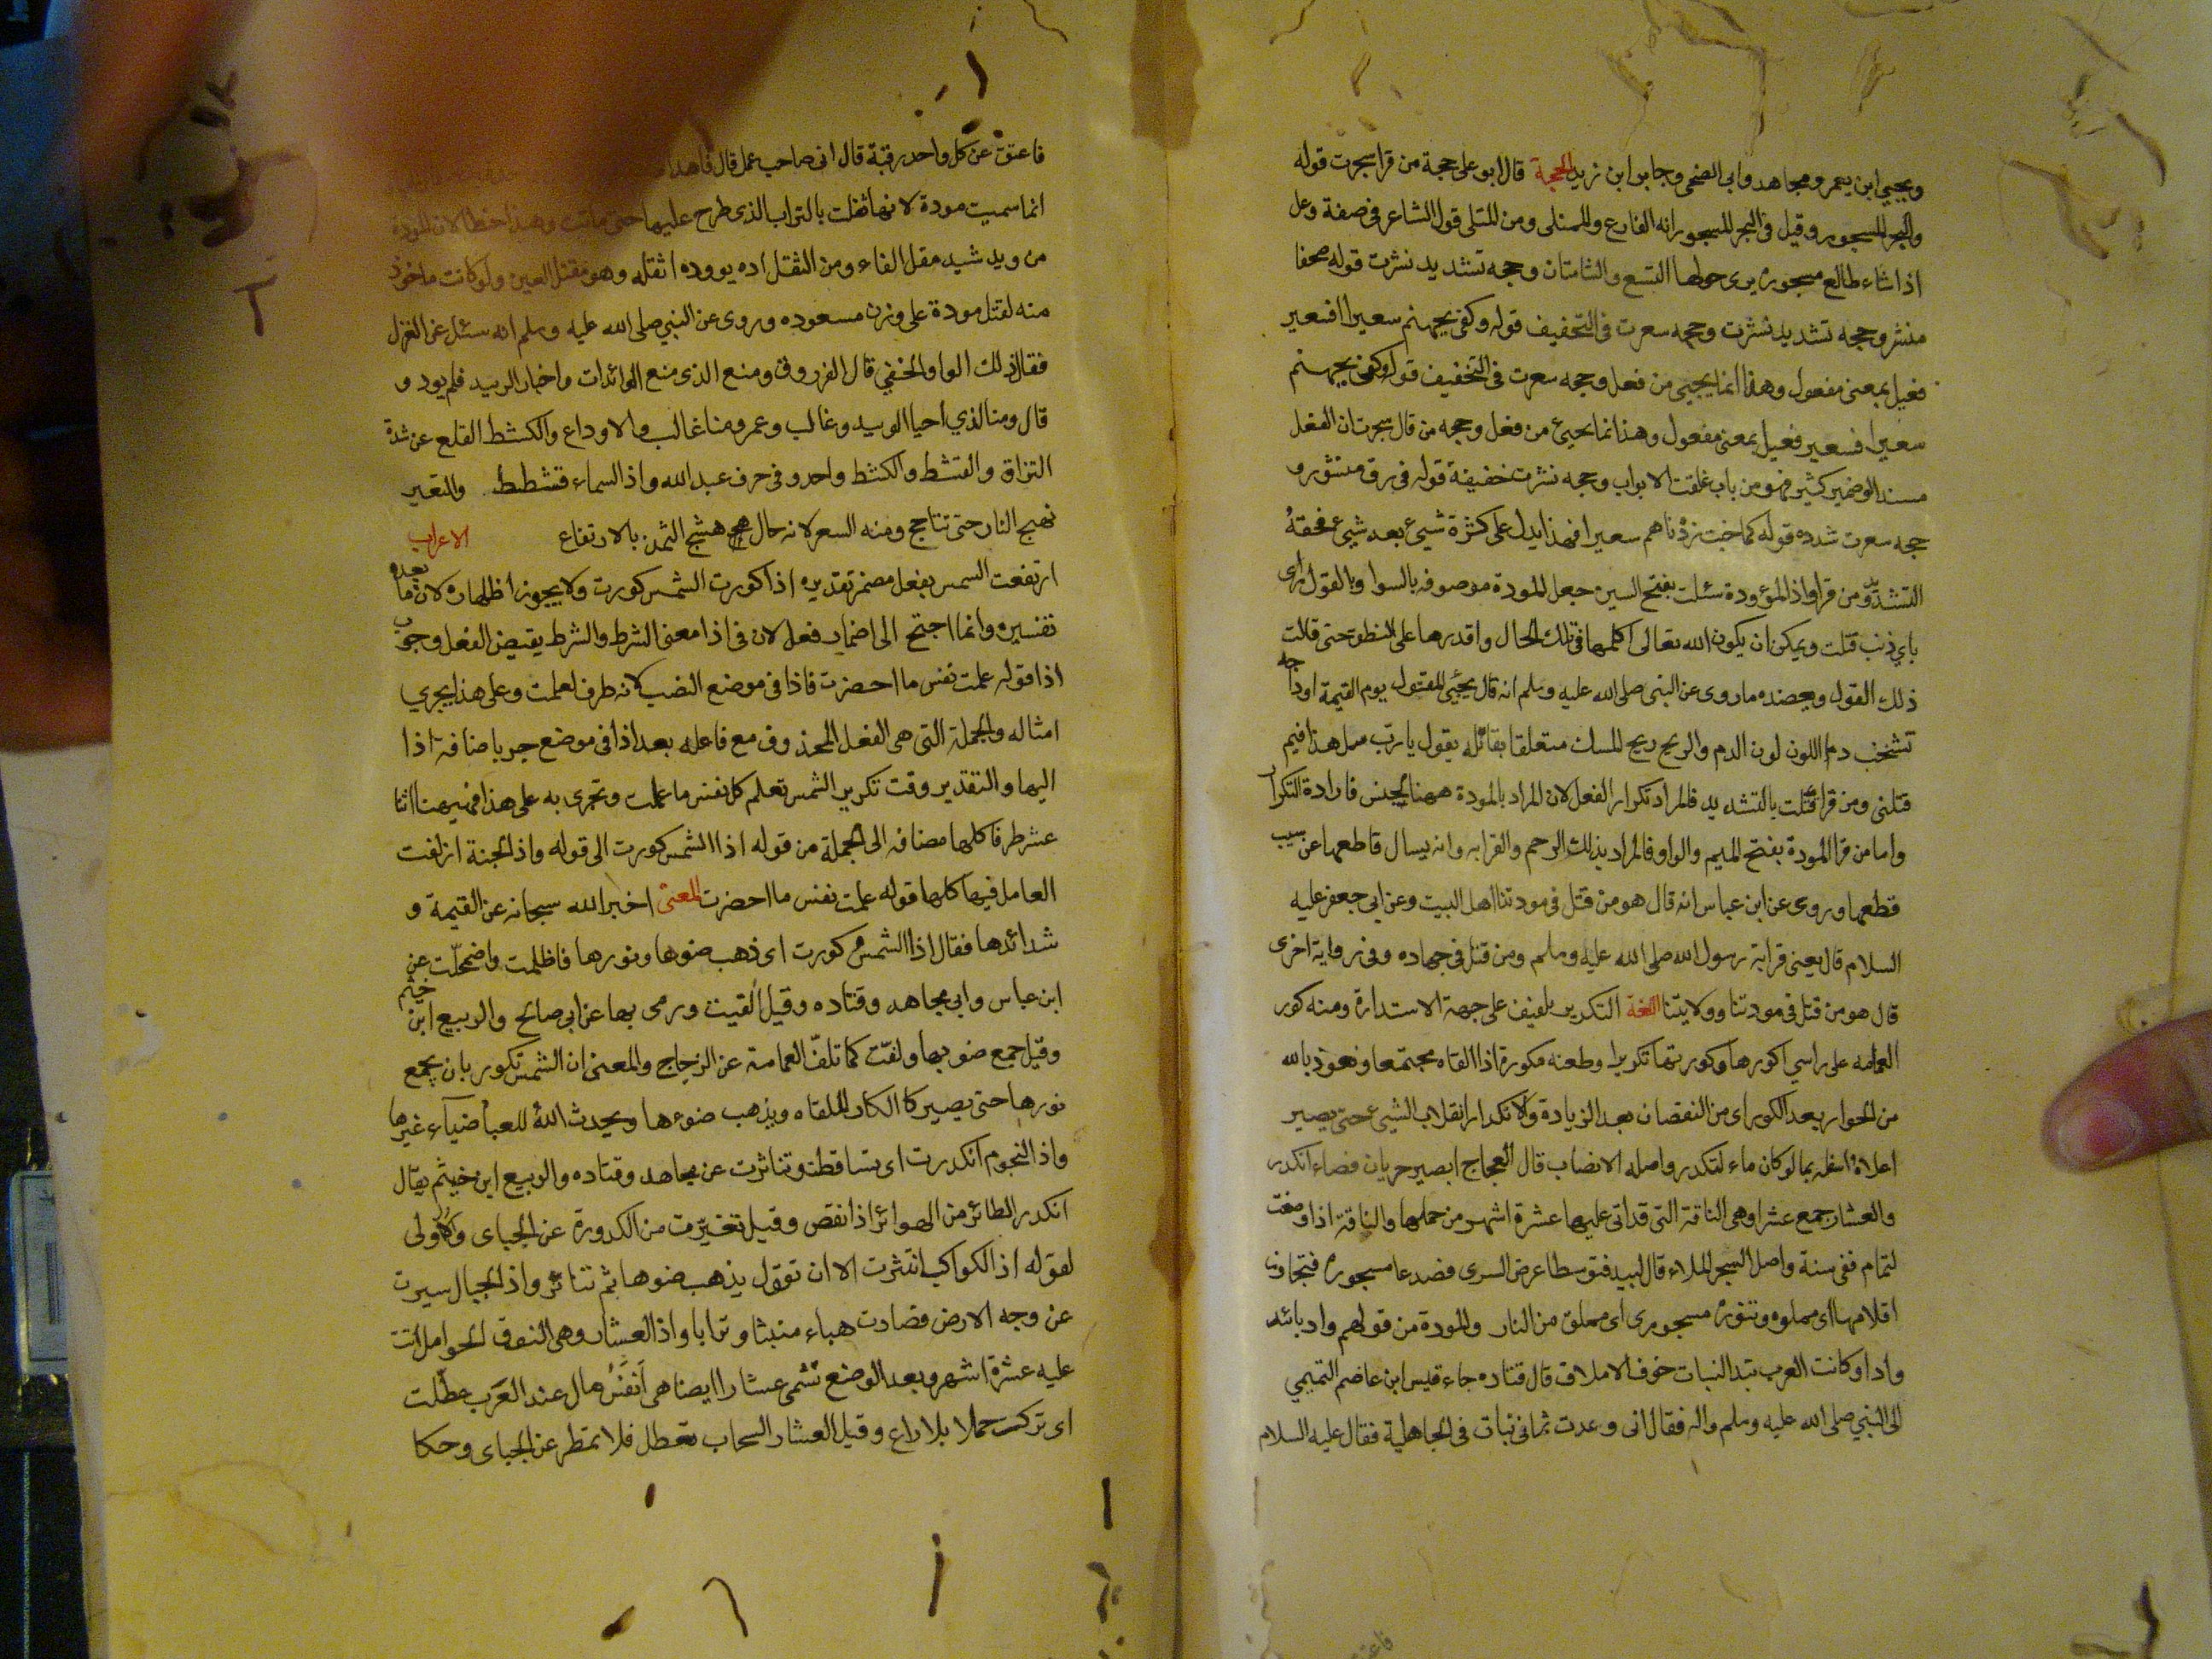 ويحيي ابن يعمر ومجاهد وابي الضحى وجابر ابن زيد الحجة قال ابو على حجة من قرا سجرت قوله
والبحر المسجور وقيل في البحر المسجور انه الفارع والممتلى ومن الممتلى قول الشاعر في صفة وعل
اذا شاء طالع مسجورة يرى حولها النسع والشاسان وحجه تشديد نشرت قوله صحفا
منشر وحجه تشديد نشرت وحجه سعرت في التخفيف قوله وكفى بجهنم سعيرا افسعير
فعيل بمعنى مفعول وهذا انما يجيى من فعل وحجه سعرت في التخفيف قوله وكفى بجهنم
سعيرا فسعير فعيل بمعنى مفعول وهذا انما يجيئ من فعل وحجه من قال سجرت ان الفعل
مسند الى ضمير كثير فهو من باب غلقت الابواب وحجه نشرت خفيفة قوله في رق منشور و
حجه سعرت شدده قوله كما خبت زدناهم سعيرا فهذا يدل على كثرة شيئ بعد شيئ فحقه
التشديد ومن قرا واذا المؤودة سئلت بفتح السين جعل المودة موصوفه بالسوا وبالقول اى
باي ذنب قتلت ويمكن ان يكون الله تعالى اكلمها في تلك الحال واقدرها على النطق حتى قالت
ذلك القول ويعضده ما روى عن النبي صلى الله عليه وسلم انه قال يجئي المقتول يوم القيمة اوداجه
تشخب دم اللون لون الدم والريح ريح المسك متعلقا بقائله يقول يا رب سل هذا فيم
قتلني ومن قرا قتلت بالتشديد فالمراد تكرار الفعل لان المراد بالمودة ههنا الجنس فارادة التكرار
واما من قرا المودة بفتح الميم والواو فالمراد بذلك الرحم والقرابه وانه يسال قاطعها عن سبب
قطعها وروى عن ابن عباس انه قال هو من قتل في مودتنا اهل البيت وعن ابي جعفر عليه
السلام قال يعني قرابة رسول الله صلى الله عليه وسلم ومن قتل في جهاده وفي رواية اخرى
قال هو من قتل في مودتنا وولايتنا اللغة التكوير تلفيف على جهة الاستدارة ومنه كور
العمامه على راسي اكورها وكورتها تكويرا وطعنه مكورة اذا القاه مجتمعا ونعوذ بالله
من الحوار بعد الكور اى من النقصان بعد الزيادة والانكدار انقلاب الشيئ حتى يصير
اعلاه اسفله بما لو كان ماء لتكدر واصله الانصاب قال العجاج ابصر خربان فضاء انكدر
والعشار جمع عشرا وهي الناقة التي قد اتى عليها عشرة اشهر من حملها والناقة اذا وضعت
لتمام ففي سنة واصل السجر الملاء قال لبيد فتوسطا عرض السرى فصدعا مسجورة فتجاوت
اقلامها اى مملوه وتنوره مسجورى اى مملو من النار والمودة من قولهم واد يائد
وادا وكانت العرب تئد البنات خوف الاملاق قال قتاده جاء قيس ابن عاصم التميمي
الى النبي صلى الله عليه وسلم واله فقال انى وعدت ثمانى بنات في الجاهلية فقال عليه السلام
فاعتق عن كل واحد رقبة قال انى صاحب عمل قال فاهد
انما سميت مودة لانها ثقلت بالتراب الذى طرح عليها حتى ماتت وهذا خطا لان المودة
من ويد شيد مقل الفاء ومن الثقل اده يووده اثقله وهو مقتل العين ولو كانت ماخوذ
منه لقتل مودة على وزن مسعوده وروى عن النبي صلى الله عليه وسلم انه سئل عن الغزل
فقال ذلك الواو الخفي قال الفرزوق ومنع الذى منع الوائدات واخبار الوبيد فلم يود و
قال ومنا الذي احيا الوبيد وغالب وعمرو منا غالب والاوداع والكشط القلع عن شدة
التزاق والقشط والكشط واحد وفي حرف عبد الله واذ السماء قشطط والتعير
نهيج النار حتى تتاجج ومنه السعر لانه حال هيج هشج الثمن بالارتفاع الاعراب
ارتفعت السمس بفعل مضمر تقديره اذا كورت الشمس كورت ولا يجوز اظهاره لان ما بعده
تفسيره وانما اجتح الى اضمار فعل لان في اذا معنى الشرط والشرط يقتيض الفعل وجوب
اذا قوله علمت نفس ما احضرت فاذا في موضع النصب لانه ظرف لعلمت وعلى هذا يجري
امثاله والجملة التي هي الفعل المحذوف مع فاعله بعد اذا في موضع جر باضافة اذا
اليها والتقدير وقت تكوير الشمس تعلم كل نفس ما عملت وتجزى به على هذا فهيهنا اثنا
عشر ظرفا كلها مضافه الى الجملة من قوله اذا الشمس كورت الى قوله واذ الجنة ازلفت
العامل فيها كلها قوله علمت نفس ما احضرت المعنى اخبر الله سبحانه عن القيمة و
شدائدها فقال اذا الشمس كورت اى ذهب ضوها ونورها فاظلمت واضمحلت عن
ابن عباس وابي مجاهد وقتاده وقيل القيت ورمى بها عن ابي صالح والربيع ابن خيثم
وقيل جمع ضوبها ولفت كما تلف العمامة عن الزجاج والمعنى ان الشمس تكور بان يجمع
نورها حتى يصير كا الكار الملقاه ويذهب ضوءها ويحدث الله للعبا ضياء غيرها
واذا النجوم انكدرت اى تساقطت وتناثرت عن مجاهد وقتاده والربيع ابن خيثم يقال
انكدر الطائر من الهوائز اذا نقض وقيل تغيرت من الكدورة عن الجباى والاولى
لقوله اذ الكواكب انتثرت الا ان تقول يذهب ضوها ثم تناثر واذ الجبال سيرت
عن وجه الارض فصادت هباء منبثا وترابا واذا العشار وهي النوق الحوامل اتت
عليه عشرة اشهر وبعد الوضع تسمى عشارا ايضا هي انفس مال عند العرب عطلت
اى تركت حملا بلا راع وقيل العشار السحاب تعطل فلا تمطر عن الجباى وحكا